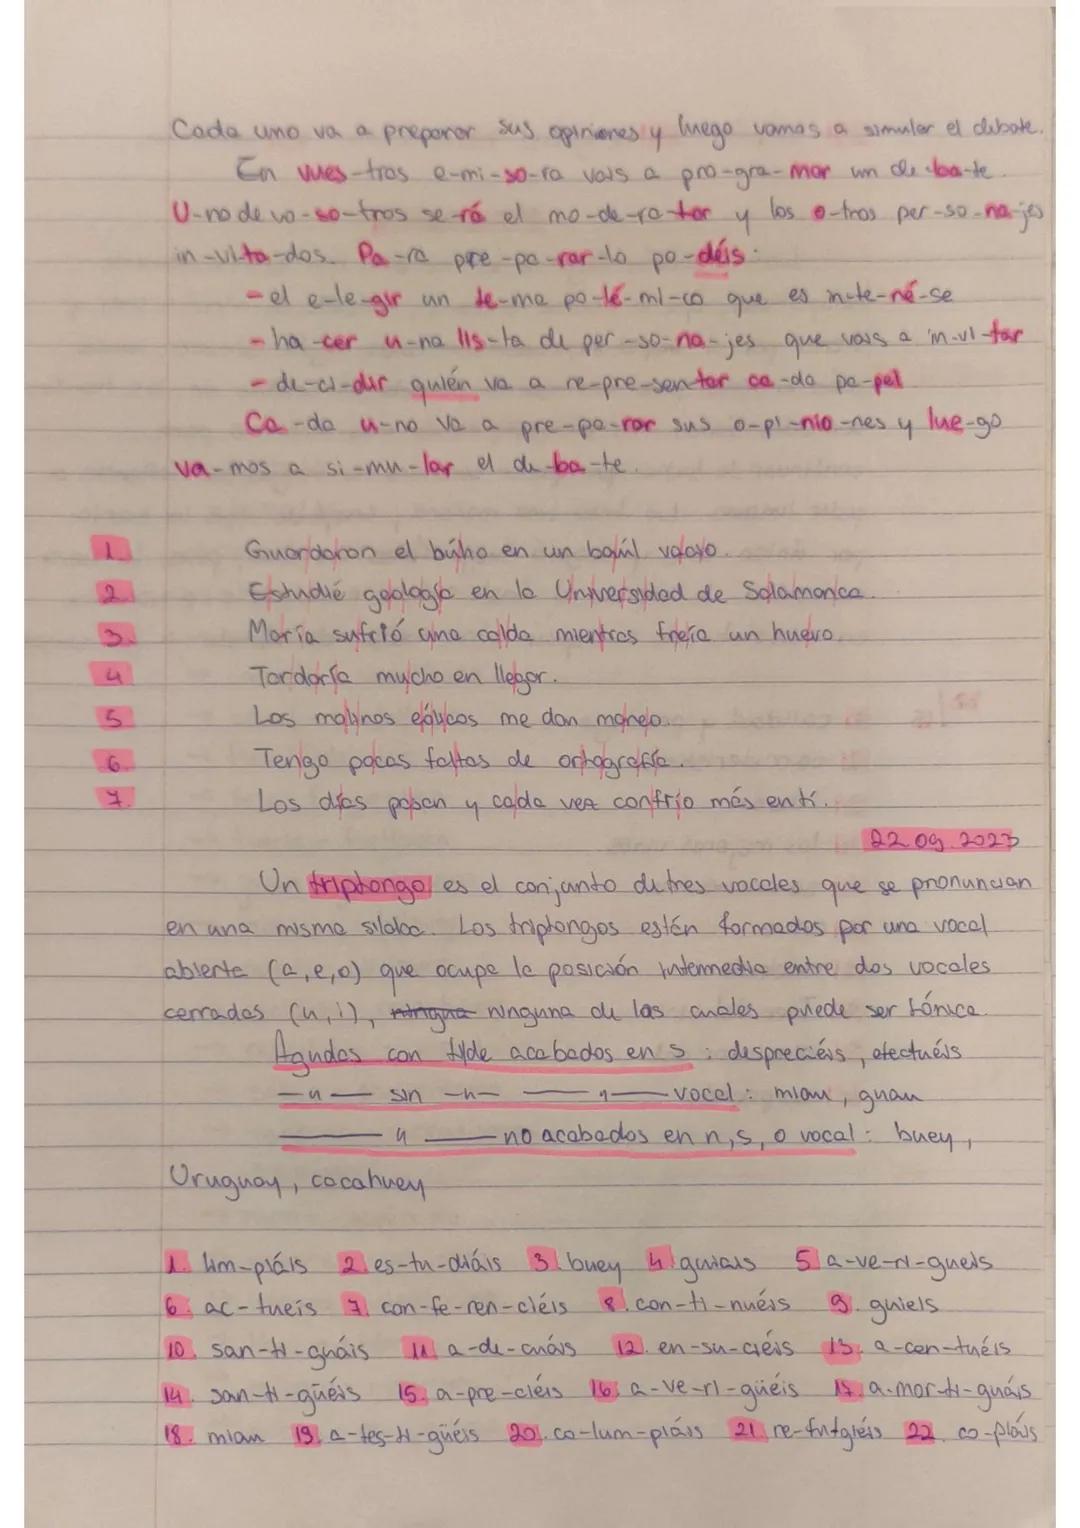 Cada uno va a preparar sus opiniones y luego vamos a simular el debate.
En vues-tras e-mi-so-ra vais a pro-gra-mar un de-ba-te.
U-no de vo-so-tros se-rá el mo-de-ra-tor y los o-tros per-so-na-jes
in-vita-dos. Pa-ra pre-pa-rar-lo po-déis:
-el e-le-gir un te-ma po-lé-mi-co que es in-te-ré-se
-ha-cer u-na lis-ta de per-so-na-jes que vais a in-vi-tar
-de-ci-dir quién va a re-pre-sentar ca-da pa-pel
Ca-da u-no va a pre-pa-rar sus o-pi-nio-nes y lue-go
va-mos a si-mu-lar el de-ba-te.
1. Guardaron el búho en un baúl valioso.
2. Estudié geología en la Universidad de Salamanca.
3. María sufrió una caída mientras freía un huevo.
4 Tardaría mucho en llegar.
5 Los molinos eólicos me dan mareo.
6. Tengo pocas faltas de ortografía.
7. Los días pasan y cada vez confrío más en tí.
22.09.2023
Un triptongo es el conjunto de tres vocales que se pronuncian
en una misma sílaba. Los triptongos están formados por una vocal
abierta (a,e,o) que ocupa la posición intermedia entre dos vocales
cerradas (u,i), ninguna de las cuales puede ser tónica.
Agudas con tilde acabados en s: despreciéis, efectuéis
—u— sin —u— —u— vocal: miau, guau
— u — no acabados en n,s, o vocal: buey,
Uruguay, cacahuey
1. lim-piáis 2. es-tu-diáis 3. buey 4. guiais 5. a-ve-ri-gueis
6. ac-tueis 7. con-fe-ren-ciéis 8. con-ti-nuéis 9. guieis
10. san-ti-guáis 11. a-de-cuáis 12. en-su-ciéis 13. a-cen-tuéis
14. san-ti-güéis 15. a-pre-ciéis 16. a-ve-ri-güéis 17. a-mor-ti-guáis
18. miau 19. a-tes-ti-güéis 20. co-lum-piáis 21. re-fugiéis 22. co-piáis